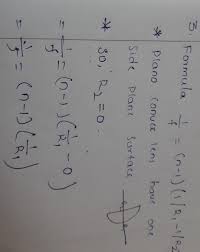 3. Formula 1/f = (n-1) (1/R₁ - 1/R₂)
* Plano convex lens have one
side plane surface
* So, R₂ = 0.
= 1/f = (n-1) (1/R₁ - 0)
= 1/f = (n-1) (1/R₁)